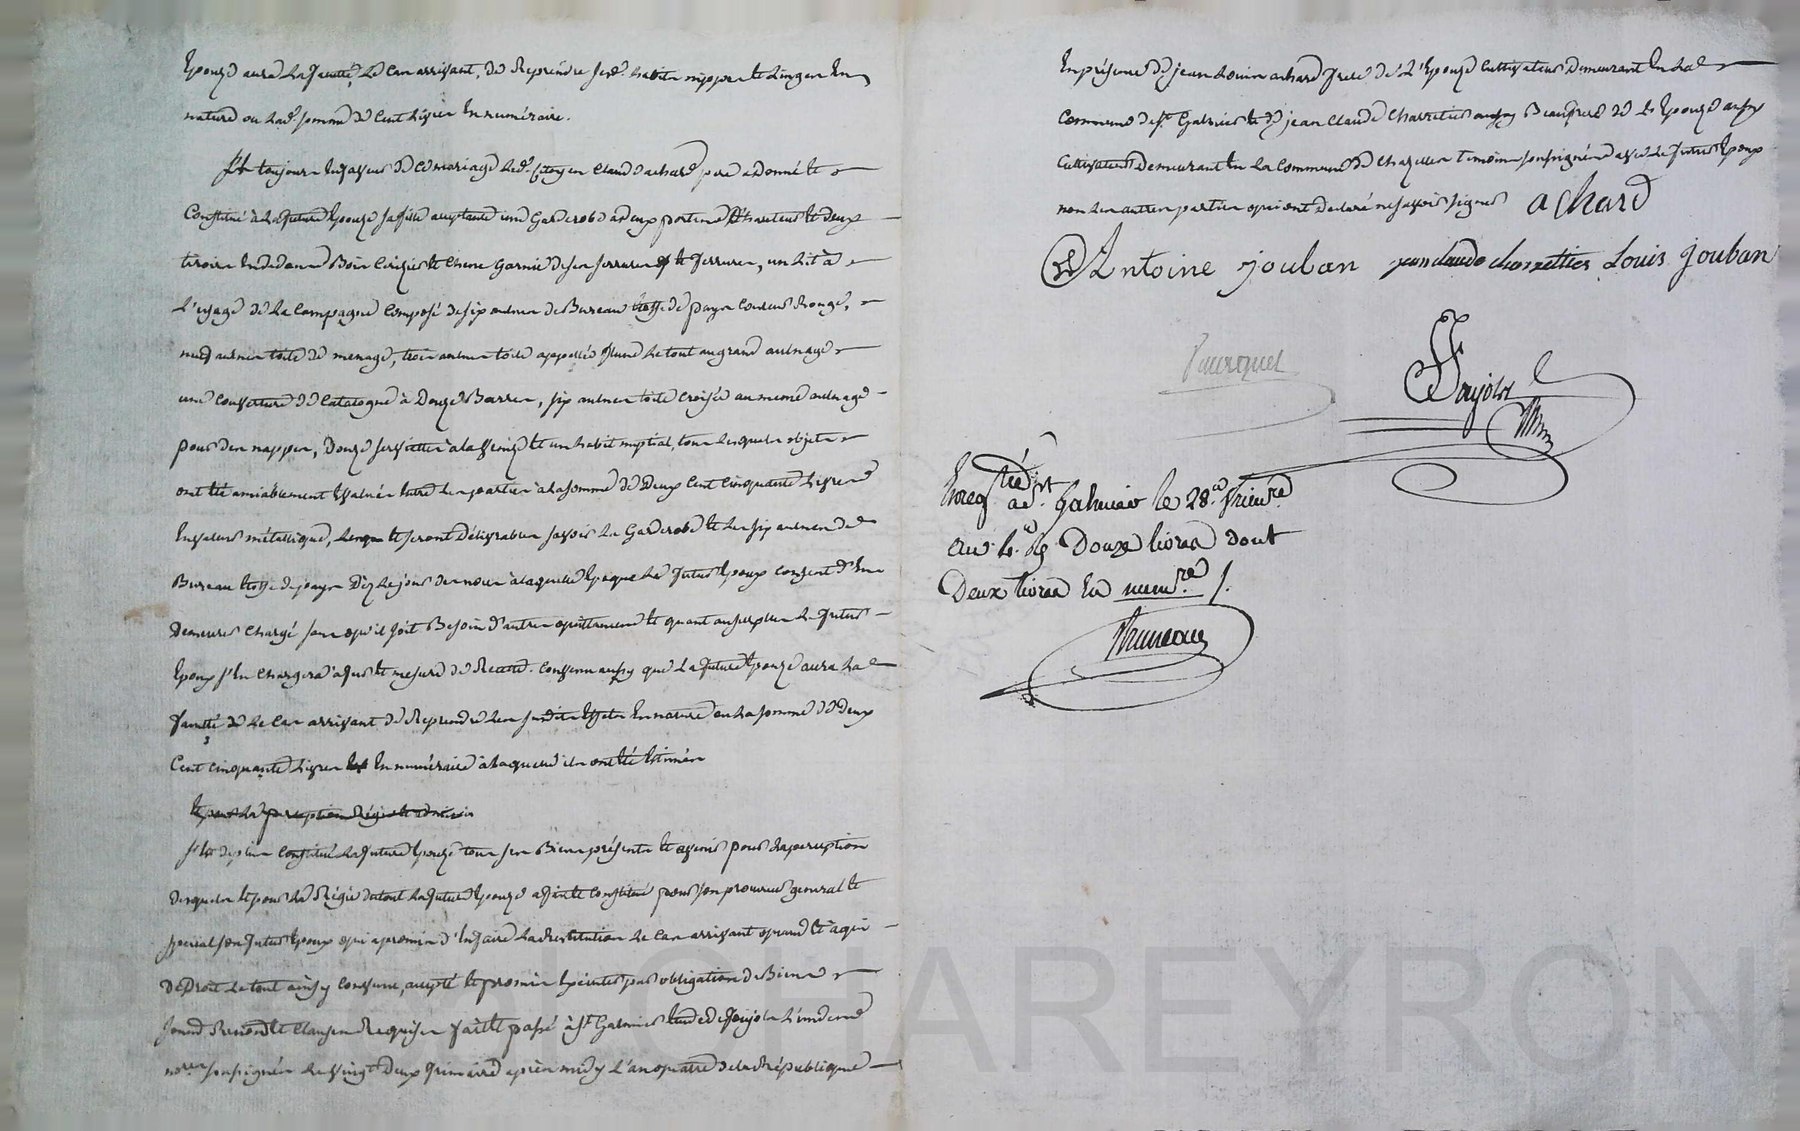 Epouze aura la faculté, le cas arrivant, de Reprendre ses d. habits nippes et Linges En
nature ou lad. somme de Cent Livres En numéraire.
Et toujours En faveur de ce mariage led. Citoyen Claude achard pere a Donné et
Constitué à la future Epouze sa fille acceptante une Garderobe à deux portes de hauteur et deux
tiroirs En dedans Bois Cerisier et Chene Garnie de ses ferrures et serrures, un Lit à
L'usage de la Campagne Composé de six aulnes de Bureau Etoffe de pays Couleur Rouge,
neuf aulnes toile de menage, trois aulnes toile appellée Plune le tout au grand aulnage
une Couverture de Catalogne à Douze Barres, six aulnes toile croisée au meme aulnage
pour des nappes, Douze serviettes à la Venize et un habit nuptial, tous lesquels objets
ont été amiablement Evalués Entre les parties à la somme de Deux Cent Cinquante Livres
En valeur métallique, et seront Délivrables savoir La Garderobe et les six aulnes de
Bureau Etoffe de pays Dèz le jour des noces à laquelle Epoque le futur Epoux Consent d'En
demeurer Chargé sans qu'il soit Besoin d'autres quittances et quant au surplus le futur
Epoux s'En Chargera à fur et mesure de Recette. Convenu aussy que La future Epouze aura la
faculté de le Cas arrivant de Reprendre les susdits Effets En nature ou la somme de Deux
Cent Cinquante Livres En numéraire à laquelle ils ont été Estimés
Et pour la perception Régie et
s'Est de plus Constitué la future Epouze tous ses Biens présents et avenir pour la perception
desquels et pour la Régie du tout la future Epouze a fait et Constitué pour son procureur general et
special son futur Epoux qui a promis d'En faire la Restitution le Cas arrivant quand et à qui
de Droit le tout ainsy Convenu, accepté et promis Exécuter par obligation de Biens
soumis Renoncé et Clauses Requises fait et passé à St. Galmier Etude de Poujolz L'un des
nores. soussignés le vingt Deux frimaire après midy L'an quatre de la République
En présence de jean Louis achard frere de L'Epouze Cultivateur Demeurant En la
Commune de St. Galmier et de jean Claude Charretier aussy Beaufrere de L'Epouze aussy
Cultivateur Demeurant En La Commune de Chazelles temoins soussignés avec le futur Epoux
non les autres parties qui ont declaré ne savoir signer achard
Antoine jouban jean claude charrettier Louis Jouban
Poujolz
Enregtré à St. Galmier le 28. frimre.
au 4. Douze livres dont
Deux livres En numre. /.
CHAREYRON